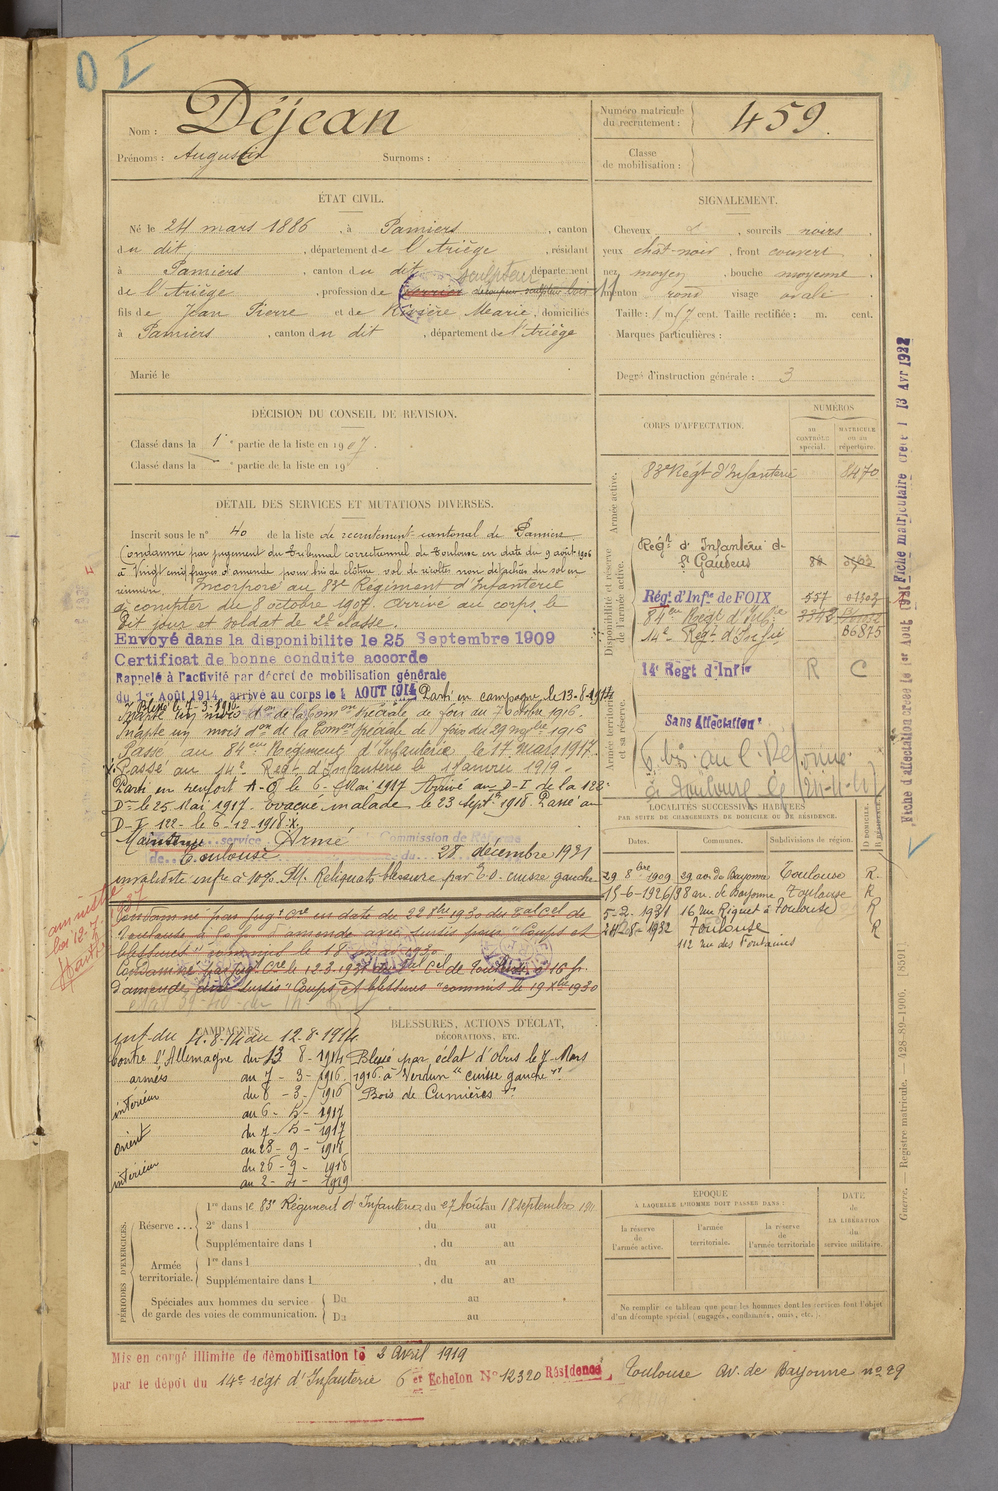 Nom : Déjean
Prénoms : Augustin Surnoms :
Numéro matricule du recrutement : 459.
Classe de mobilisation :
ÉTAT CIVIL.
Né le 24 mars 1886, à Pamiers, canton
du dit, département de l'Ariège, résidant
à Pamiers, canton du dit, département
sculpteur
de l'Ariège, profession de
fils de Jean Pierre et de Rivière Marie, domiciliés
à Pamiers, canton du dit, département de l'Ariège
Marié le
SIGNALEMENT.
Cheveux , sourcils noirs,
yeux chât-noir, front couvert,
nez moyen, bouche moyenne,
menton rond visage ovale.
Taille : 1 m. cent. Taille rectifiée : m. cent.
Marques particulières :
Degré d'instruction générale : 3
DÉCISION DU CONSEIL DE REVISION.
Classé dans la 1e partie de la liste en 1907.
Classé dans la e partie de la liste en 19
DÉTAIL DES SERVICES ET MUTATIONS DIVERSES.
Inscrit sous le n° 40 de la liste de recrutement cantonal de Pamiers
Condamné par jugement du tribunal correctionnel de Toulouse en date du 9 août 1906
à vingt cinq francs d'amende pour bris de clôture, vol de récoltes non détachées du sol en
réunion. Incorporé au 83e Régiment d'Infanterie
à compter du 8 octobre 1907. Arrivé au corps le
dit jour et soldat de 2e classe.
Envoyé dans la disponibilite le 25 Septembre 1909
Certificat de bonne conduite accorde
Rappelé à l'activité par décret de mobilisation générale
du 1er Août 1914, arrivé au corps le 4 AOUT 1914 Parti en campagne le 13-8-1914
Blessé le 7-3-1916
Inapte un mois don de la Comon spéciale de foix du 7 octobre 1916.
Inapte un mois don de la Comon spéciale de foix du 29 novbre 1916
Passé au 84em Régiment d'Infanterie le 17 mars 1917.
Passé au 14e Régt d'Infanterie le 1 Janvier 1919.
Parti en renfort A-O le 6-Mai 1917 Arrivé au D-I de la 122e
Don le 25 Mai 1917. Evacué malade le 23 Septbre 1918. Passé au
D-I 122 le 6-12-1918
Maintenu service Armé Commission de Réforme
de Toulouse du 28 décembre 1931
invalidité infre à 10%. Reliquats blessure par E.O. cuisse gauche
amnistié
loi 12.7.1937
Condamné par jugt cre en date du 22 8bre 1930 du
Toulouse à amende avec sursis pour "Coups et
blessures" commis le 18 mai 1930
Condamné par jugt Cre le 12.3.1931 du cel de Toulouse à 16 fr.
d'amende sans sursis "Coups et blessures" commis le 19 Xbre 1930
CORPS D'AFFECTATION.
NUMÉROS
au CONTRÔLE spécial.
MATRICULE ou au répertoire.
Armée active.
83e Régt d'Infanterie 8470
Disponibilité et réserve de l'armée active.
Régt d'Infanterie de
St Gaudens
Régt d'Infie de FOIX 557 01303
84em Régt d'Infie
14e Régt d'Infie B6875
Armée territoriale et sa réserve.
14e Régt d'Infie R C
Sans Affectation
LOCALITÉS SUCCESSIVES HABITÉES
PAR SUITE DE CHANGEMENTS DE DOMICILE OU DE RÉSIDENCE.
Dates. Communes. Subdivisions de région. D DOMICILE. R RÉSIDENCE.
29 8bre 1909 29 av. de Bayonne Toulouse R
15-6-1926 88 av. de Bayonne Toulouse R
5-2-1931 16 rue Riquet à Toulouse R
8-1932 Toulouse R
112 rue des Fontaines
CAMPAGNES.
int. du 4.8.14 au 12.8.1914
Contre l'Allemagne du 13 8-1914
armées au 7-3-1916
intérieur du 8-3-1916
au 6-5-1917
Orient du 7-5-1917
au 25-9-1918
intérieur du 26-9-1918
au 2-4-1919
BLESSURES, ACTIONS D'ÉCLAT,
DÉCORATIONS, ETC.
Blessé par éclat d'obus le 7 Mars
1916 à Verdun "cuisse gauche".
Bois de Cumières
PÉRIODES D'EXERCICES.
Réserve ... 1re dans le 83e Régiment d'Infanterie du 27 Août au 18 septembre 191
2e dans l , du au
Supplémentaire dans l , du au
Armée territoriale. 1re dans l , du au
Supplémentaire dans l , du au
Spéciales aux hommes du service de garde des voies de communication. Du au
Du au
ÉPOQUE
À LAQUELLE L'HOMME DOIT PASSER DANS :
la réserve de l'armée active.
l'armée territoriale.
la réserve de l'armée territoriale
DATE de LA LIBÉRATION du service militaire.
Ne remplir ce tableau que pour les hommes dont les services font l'objet
d'un décompte spécial (engagés, condamnés, omis, etc.).
Mis en congé illimite de démobilisation le 2 Avril 1919
par le dépôt du 14e régt d'Infanterie 6e Echelon N° 12320 Résidence Toulouse Av. de Bayonne no 29
Guerre. — Registre matricule. — 428-89-1906. [8391]